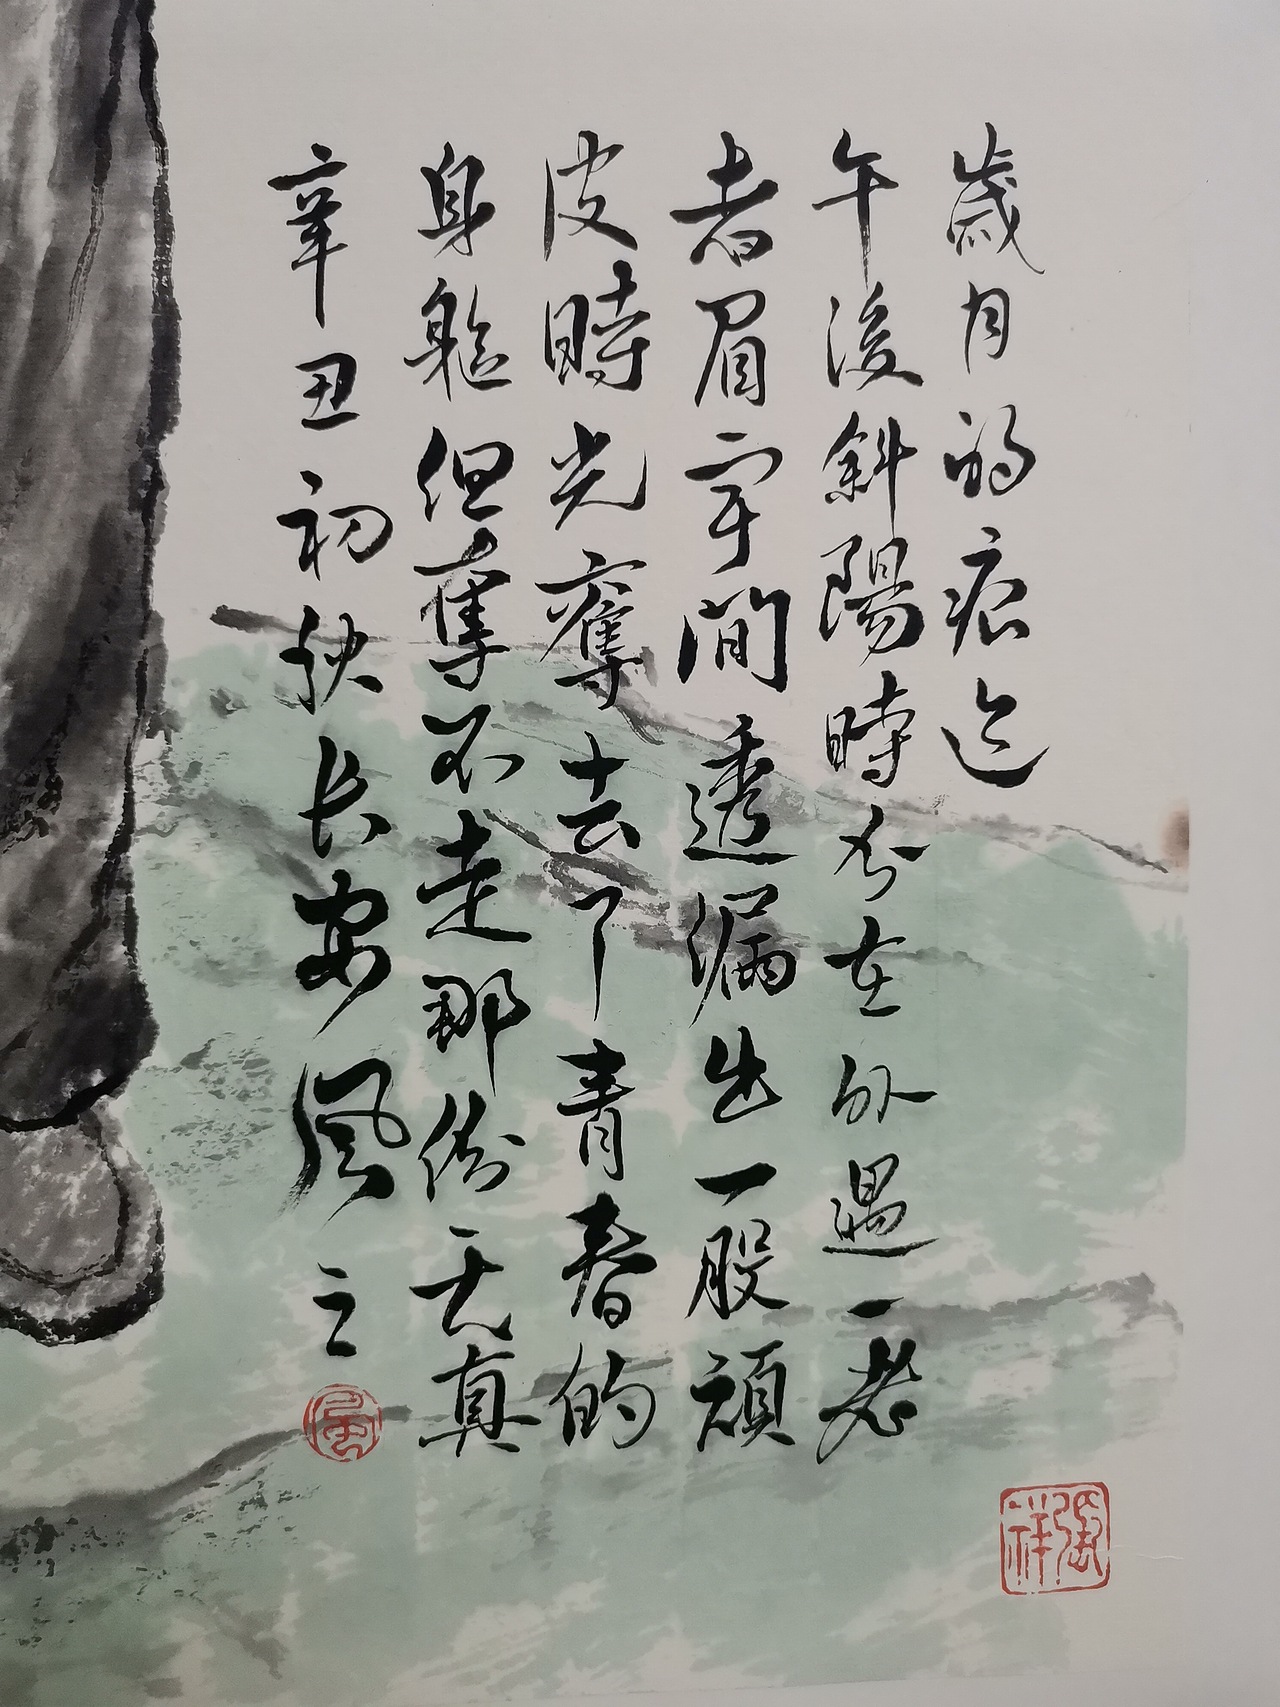 歲月的痕迹
午後斜陽時分在外遇一老
者眉宇間透漏出一股頑
皮時光奪去了青春的
身軀但奪不走那份天真
辛丑初秋長安風之
張祥